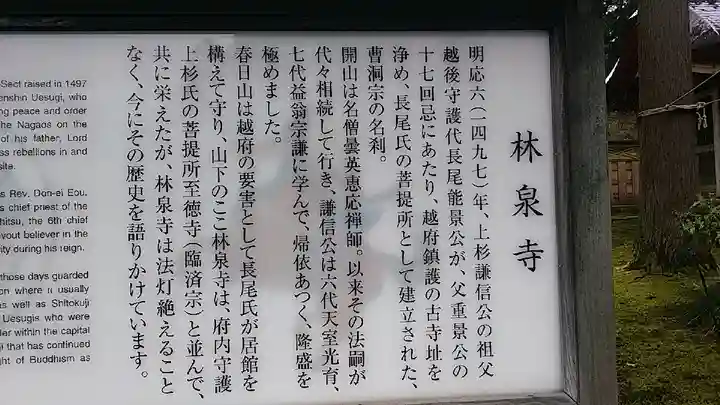 林泉寺
明応六(一四九七)年、上杉謙信公の祖父
越後守護代長尾能景公が、父重景公の
十七回忌にあたり、越府鎮護の古寺址を
浄め、長尾氏の菩提所として建立された、
曹洞宗の名刹。
開山は名僧曇英恵応禅師。以来その法嗣が
代々相続して行き、謙信公は六代天室光育、
七代益翁宗謙に学んで、帰依あつく、隆盛を
極めました。
春日山は越府の要害として長尾氏が居館を
構えて守り、山下のここ林泉寺は、府内守護
上杉氏の菩提所至徳寺(臨済宗)と並んで、
共に栄えたが、林泉寺は法灯絶えること
なく、今にその歴史を語りかけています。
Sect raised in 1497
enshin Uesugi, who
ng peace and order
he Nagaos on the
of his father, Lord
ss rebellions in and
site.
s Rev. Don-ei Eou.
s chief priest of the
hitsu, the 6th chief
vout believer in the
ity during his reign.
those days guarded
on where it usually
as well as Shitokuji
Uesugis who were
der within the capital
ji that has continued
ght of Buddhism as